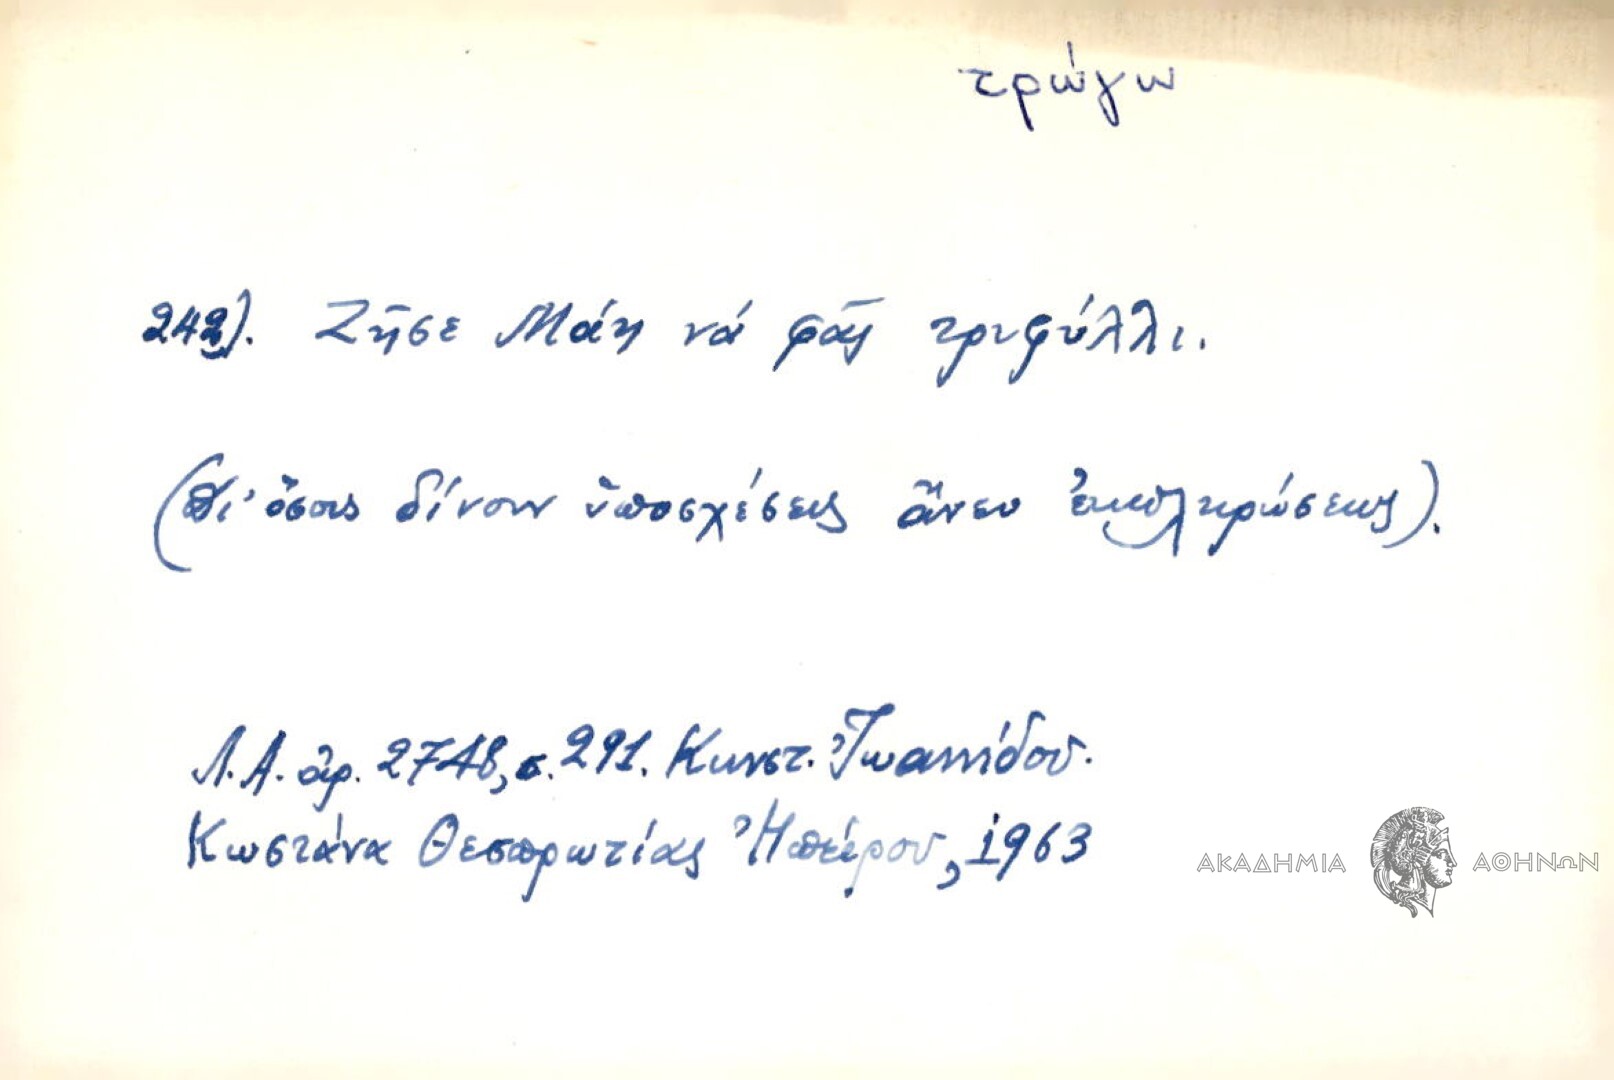 τρώγω
242). Ζῆσε Μάη νά φᾶς τριφύλλι.
(Δι' ὅσους δίνουν ὑποσχέσεις ἄνευ ἐκπληρώσεως).
Λ.Α. ἀρ. 2748, σ. 291. Κωνστ. Ἰωαννίδου.
Κωστάνα Θεσπρωτίας Ἠπείρου, 1963
ΑΚΑΔΗΜΙΑ ΑΘΗΝΩΝ